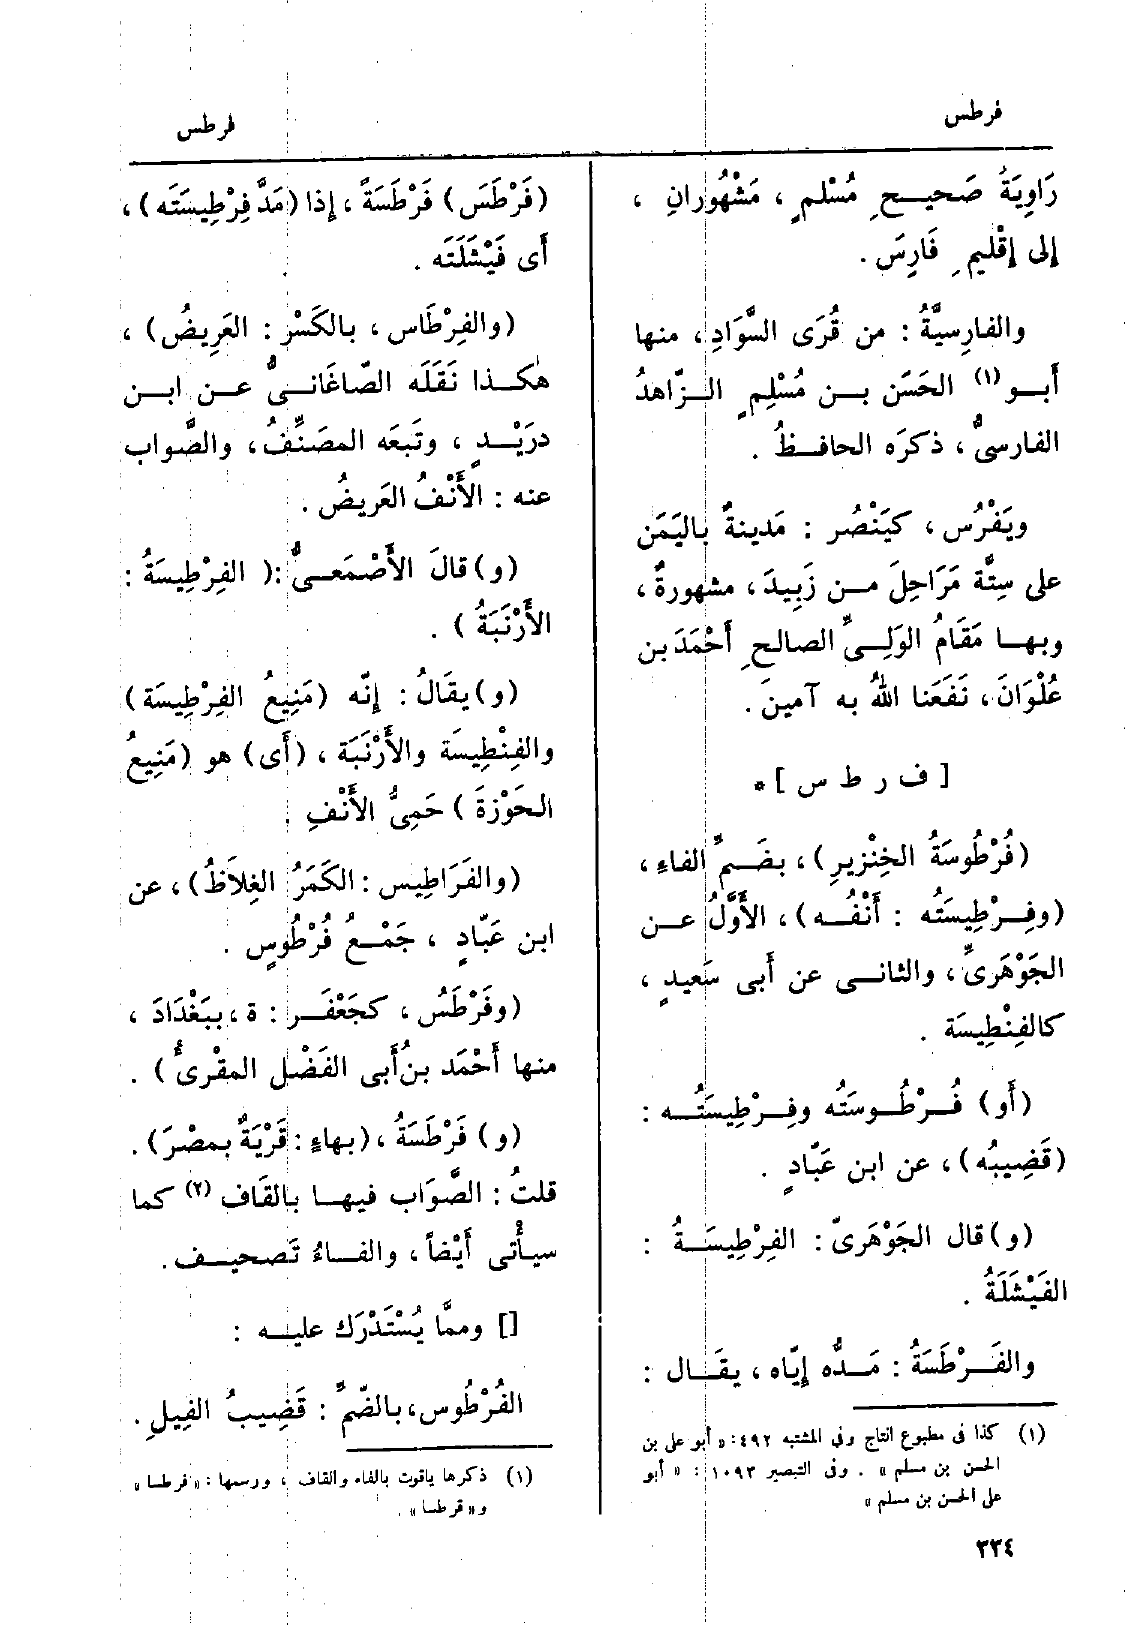 فرطس
فرطس
رَاوِيَةُ صَحيحِ مُسْلمٍ ، مَشْهُورانِ ،
إلى إقْليمِ فَارِسَ .
والفارِسيَّةُ : من قُرَى السَّوَادِ ، منها
أَبو (١) الحَسَن بن مُسْلِمٍ الزّاهدُ
الفارسىُّ ، ذكرَه الحافظُ .
ويَفْرُس ، كيَنْصُر : مَدينةٌ باليَمَن
على سِتَّة مَرَاحِلَ من زَبِيدَ ، مشهورةٌ ،
وبها مَقَامُ الوَلِىِّ الصالحِ أَحْمَدَ بن
عُلْوَانَ ، نَفَعَنا اللهُ به آمينَ .
[ ف ر ط س ] *
(فُرْطُوسَةُ الخِنْزيرِ) ، بضَمِّ الفاءِ ،
(وفِرْطِيسَتُه : أَنْفُه) ، الأَوَّلُ عن
الجَوْهَرىِّ ، والثانى عن أَبى سَعيدٍ ،
كالفِنْطِيسَة .
(أَو) فُرْطُوسَتُه وفِرْطِيسَتُه :
(قَضِيبُه) ، عن ابن عَبّادٍ .
(و) قال الجَوْهَرىّ : الفِرْطِيسَةُ :
الفَيْشَلَةُ .
والفَرْطَسَةُ : مَدُّه إيّاه ، يقَال :
(١) كذا فى مطبوع التاج وفى المشتبه ٤٩٢ : «أبو على بن
الحسن بن مسلم » . وفى التبصير ١٠٩٣ : « أبو
على الحسن بن مسلم »
(فَرْطَسَ) فَرْطَسَةً ، إذا (مَدَّ فِرْطِيسَتَه) ،
أَى فَيْشَلَتَه .
(والفِرْطَاس ، بالكَسْر : العَرِيضُ) ،
هٰكذا نَقَلَه الصّاغَانىُّ عن ابن
درَيْدٍ ، وتَبعَه المصَنِّفُ ، والصَّواب
عنه : الأَنْفُ العَريضُ .
(و) قالَ الأَصْمَعىُّ :( الفِرْطِيسَةُ :
الأَرْنَبَةُ ) .
(و) يقَالُ : إنّه (مَنِيعُ الفِرْطِيسَة)
والفِنْطِيسَة والأَرْنَبَة ، (أَى) هو (مَنِيعُ
الحَوْزةَ ) حَمِىُّ الأَنْفِ .
(والفَرَاطِيس : الكَمَرُ الغِلاَظُ) ، عن
ابن عَبّادٍ ، جَمْعُ فُرْطُوسٍ .
(وفَرْطَسُ ، كجَعْفَر : ة ، ببَغْدَادَ ،
منها أَحْمَد بنُ أَبى الفَضْل المقْرىُّ ) .
(و) فَرْطَسَةُ ، (بهاءٍ : قَرْيَةٌ بمصْرَ) .
قلتُ : الصَّوَاب فيها بالقَاف (٢) كما
سيأْتى أَيْضاً ، والفاءُ تَصحيف .
[] وممّا يُسْتَدْرَك عليه :
الفُرْطُوس ، بالضّمِّ : قَضِيبُ الفِيلِ .
(١) ذكرها ياقوت بالفاء والقاف ، ورسمها : « فرطسا »
و« قرطسا » .
٣٣٤